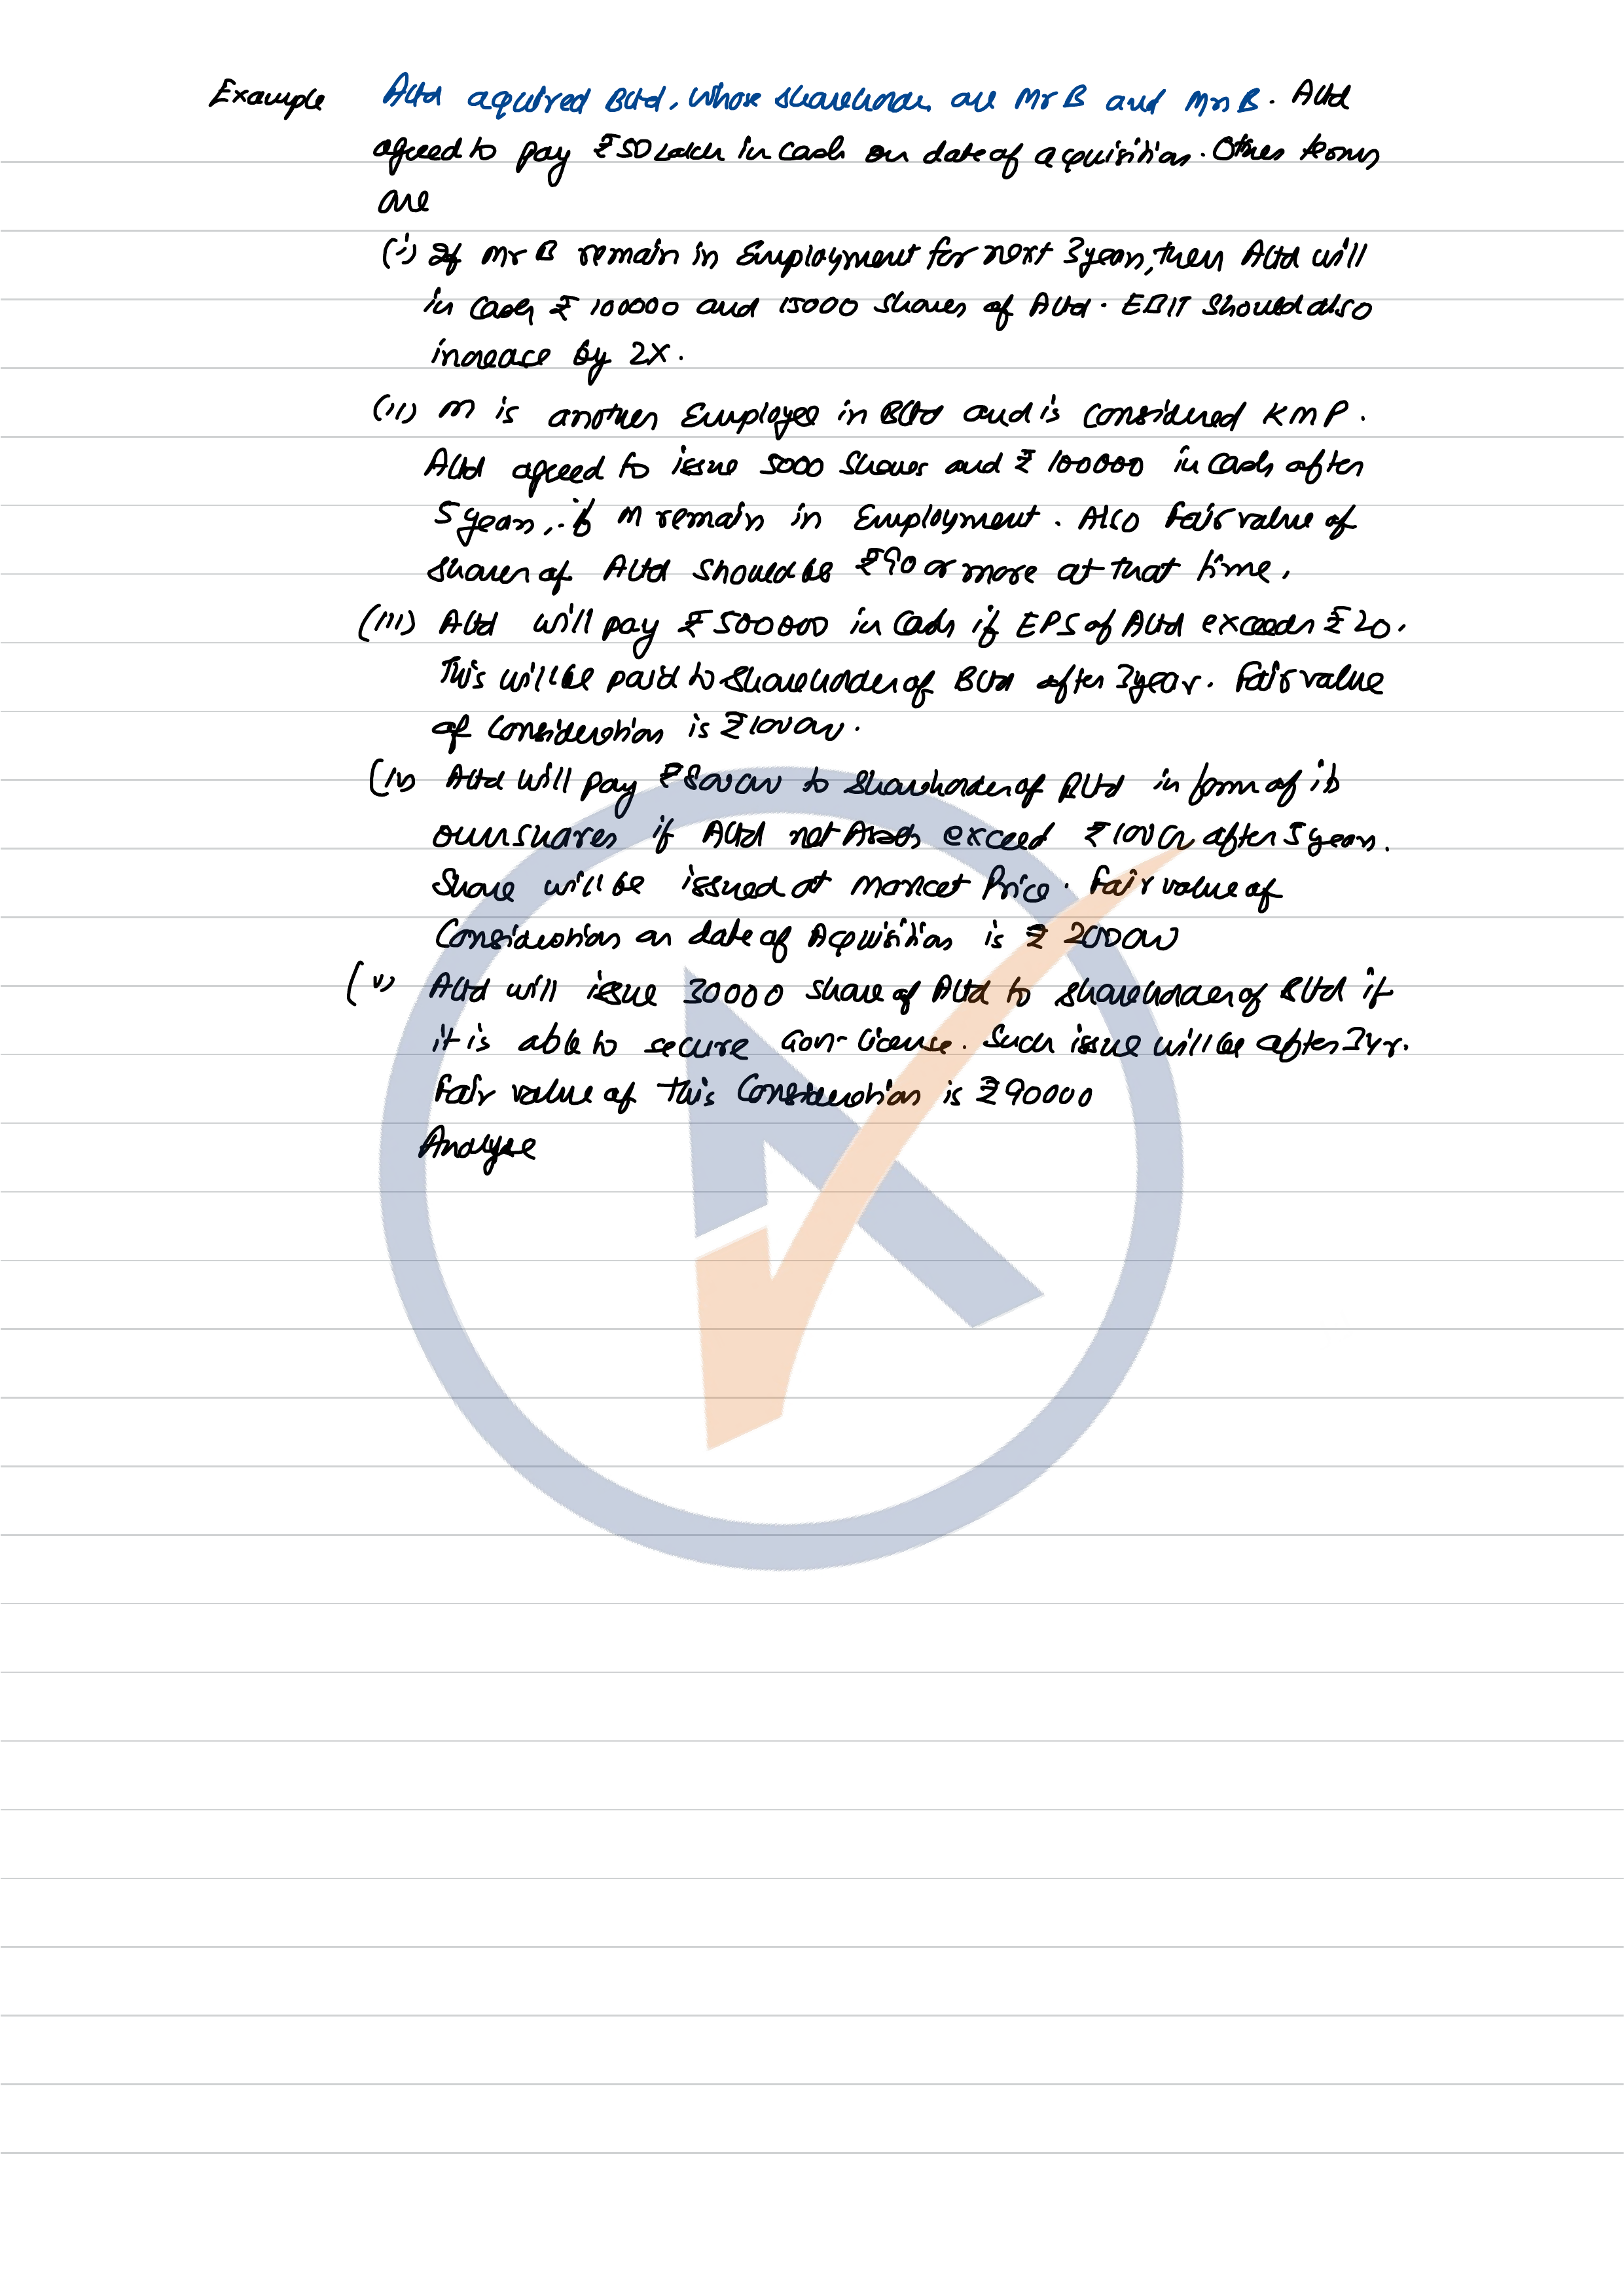 Example A Ltd aquired B Ltd, whose shareholder are Mr B and Mrs B. A Ltd
agreed to pay ₹50 Lakh in cash on date of acquisition. Other terms
are
(i) If Mr B remain in Employment for next 3 years, then A Ltd will
in cash ₹ 100000 and 15000 shares of A Ltd. EBIT should also
increase by 2X.
(ii) M is another Employee in B Ltd and is considered KMP.
A Ltd agreed to issue 5000 shares and ₹ 100000 in cash after
5 years, if M remain in Employment. Also Fair value of
shares of A Ltd should be ₹90 or more at that time.
(iii) A Ltd will pay ₹500000 in cash if EPS of A Ltd exceeds ₹20.
This will be paid to shareholder of B Ltd after 3 year. Fair value
of consideration is
(iv) A Ltd will pay to shareholder of B Ltd in form of its
own shares if A Ltd net Assets exceed ₹100 Cr after 5 years.
Share will be issued at market Price. Fair value of
Consideration on date of Acquisition is ₹
(v) A Ltd will issue 30000 share of A Ltd to shareholder of B Ltd if
it is able to secure Gov- license. Such issue will be after 3 yr.
Fair value of this Consideration is ₹90000
Analyse